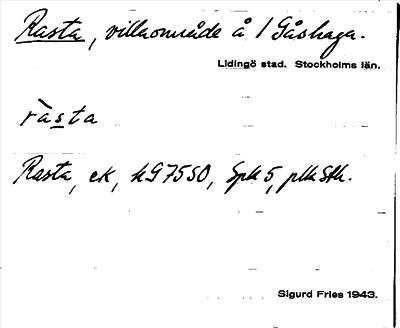 Rasta, villaområde å 1 Gåshaga.
Lidingö stad. Stockholms län.
ràsta
Rasta, ek, kG7550, Spk 5, plk Sth.
Sigurd Fries 1943.